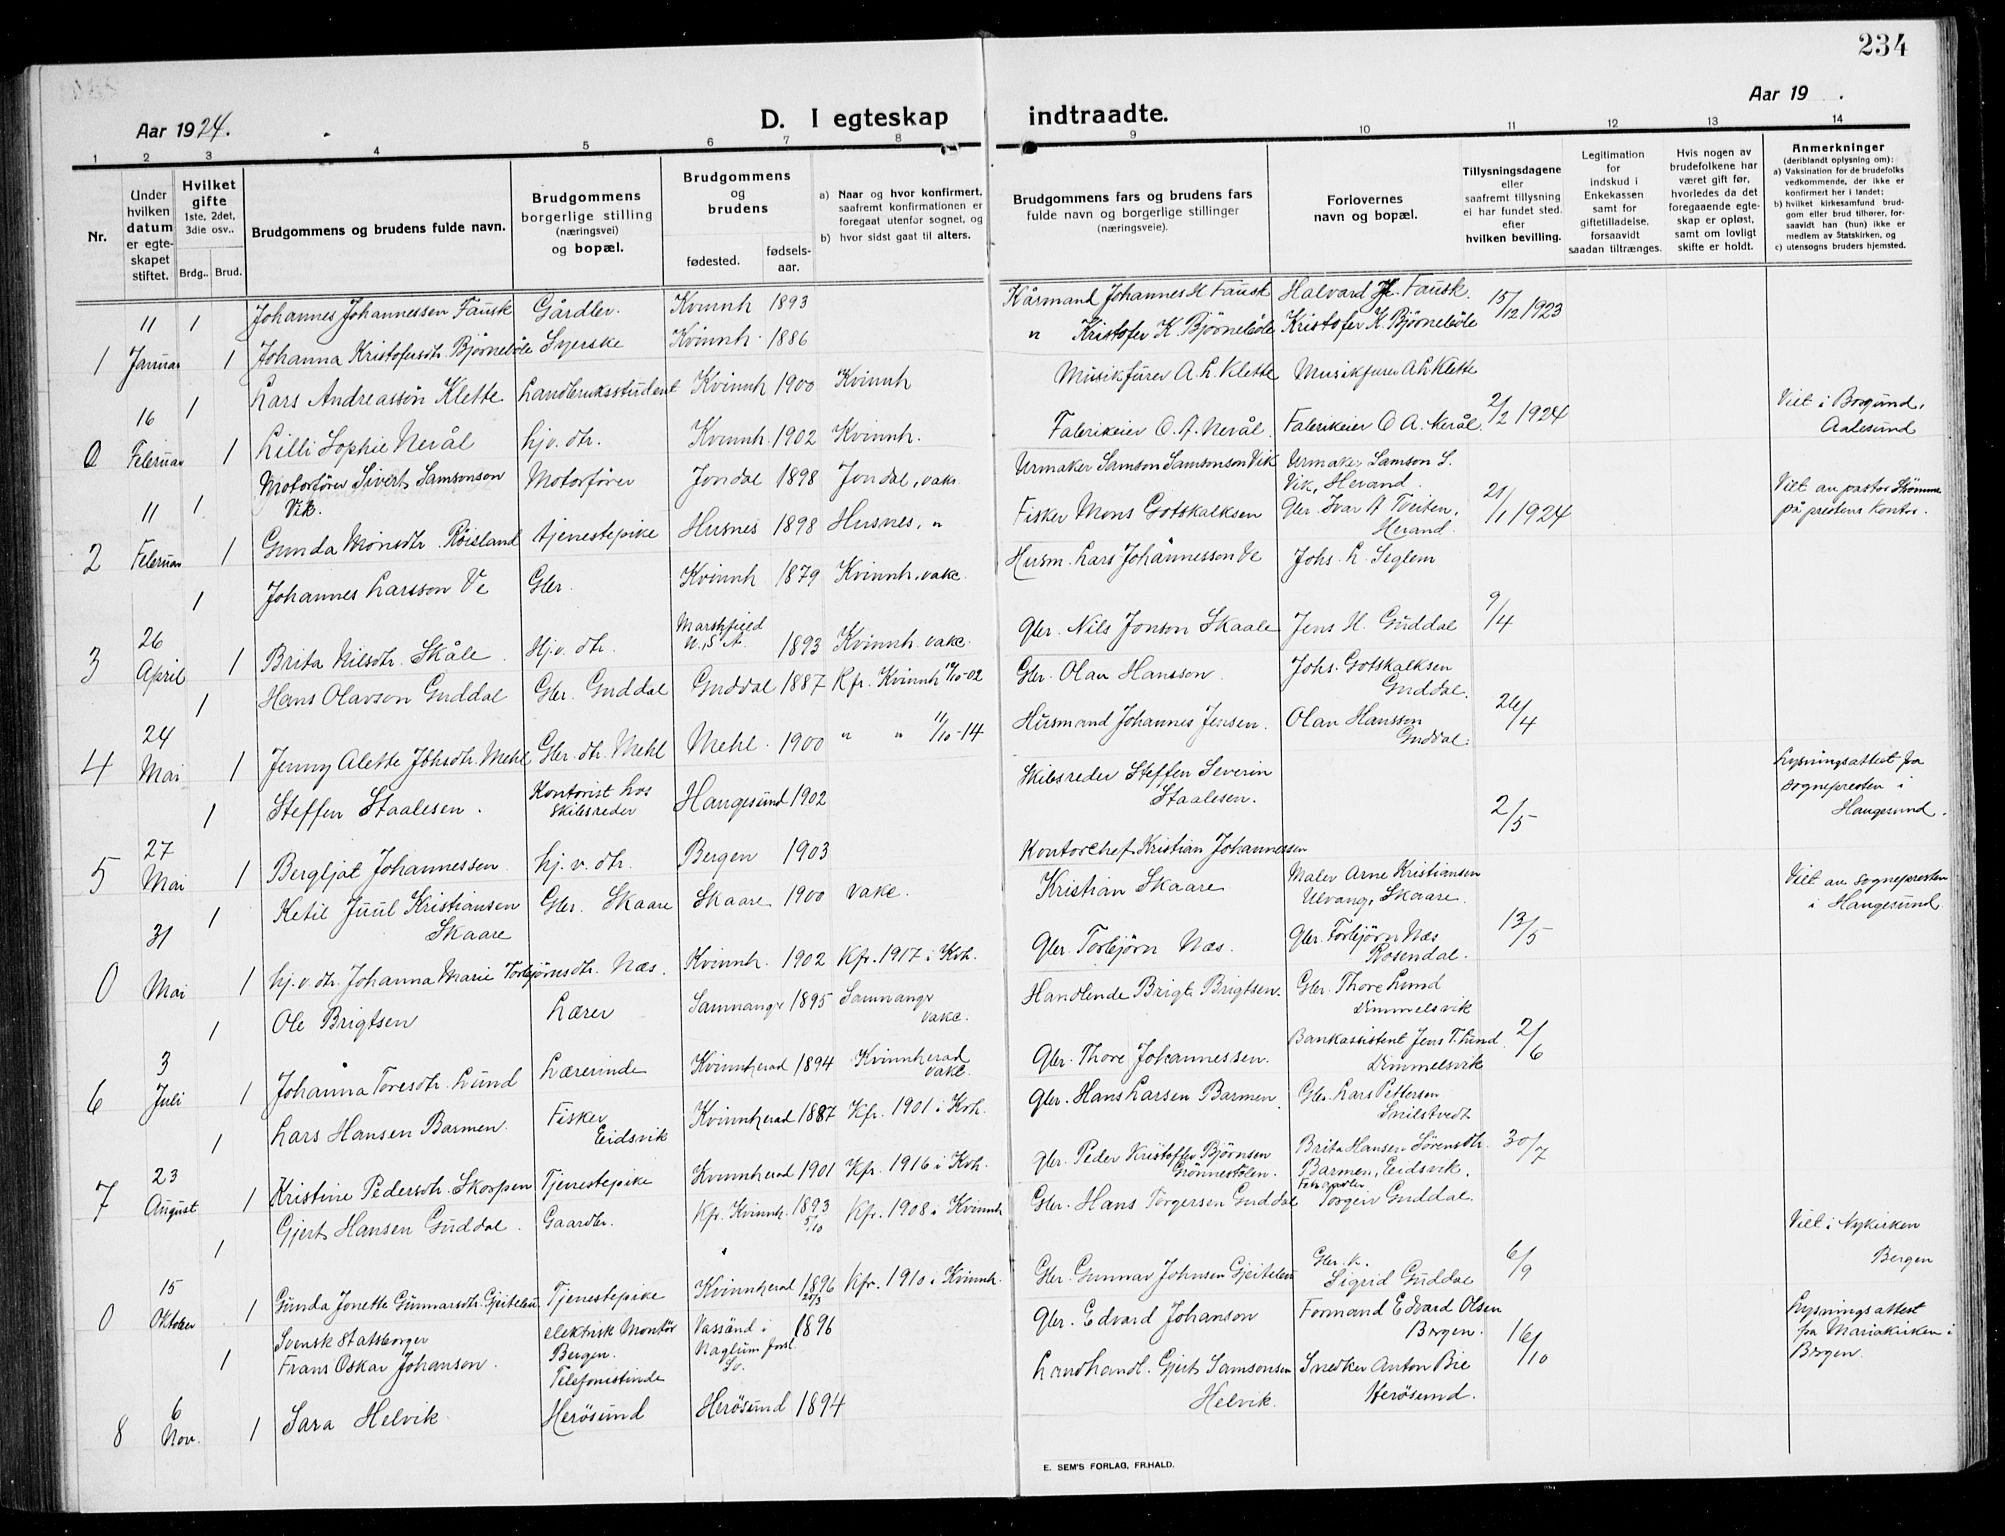 234
Aar 1924.
D. I egteskap indtraadte.
Aar 19 .
1 2 3 4 5 6 7 8 9 10 11 12 13 14
Nr.
Under hvilken datum er egteskapet stiftet.
Hvilket gifte 1ste, 2det, 3die osv..
Brdg.. Brud.
Brudgommens og brudens fulde navn.
Brudgommens borgerlige stilling (næringsvei) og bopæl.
Brudgommens og brudens
fødested. fødselsaar.
a) Naar og hvor konfirmert, saafremt konfirmationen er foregaat utenfor sognet, og
b) hvor sidst gaat til alters.
Brudgommens fars og brudens fars fulde navn og borgerlige stillinger (næringsveie).
Forlovernes navn og bopæl.
Tillysningsdagene eller saafremt tillysning ei har fundet sted. efter hvilken bevilling.
Legitimation for indskud i Enkekassen samt for giftetilladelse, forsaavidt saadan tiltrænges.
Hvis nogen av brudefolkene har været gift før, hvorledes da det foregaaende egteskap er opløst, samt om lovligt skifte er holdt.
Anmerkninger (deriblandt oplysning om):
a) Vaksination for de brudefolks vedkommende, der ikke er konfirmert her i landet;
b) hvilket kirkesamfund brudgom eller brud tilhører, forsaavidt han (hun) ikke er medlem av Statskirken, og
c) utensogns bruders hjemsted.
11 1 Johannes Johannessen Fausk Gårdbr. Kvinnh 1893 Kårmand Johannes H Fausk Halvard H. Fausk. 15/12 1923
1 Januar 1 Johanna Kristofersdtr. Bjørnebøle Syerske Kvinnh. 1886 " Kristofer K Bjørnebøle Kristofer K. Bjørnebøle
16 1 Lars Andreassøn Klette Landbruksstudent Kvinnh 1900 Kvinnh Musikfürer A. L. Klette Musikfürer A L Klette 2/2 1924 Viet i Borgund, Aalesund
0 Februar 1 Lilli Sophie Nerål hjv. dtr. Kvinnh. 1902 Kvinnh. Fabrikeier O. A. Nerål. Fabrikeier O A. Nerål
11 1. Motorfører Sivert Samsonson Vik. Motorfører Jondal 1898 Jondal, vaks. Urmaker Samson Samsonson Vik Urmaker Samson S. Vik, Herand. 21/1 1924 Viet av pastor Strømme på prestens kontor.
2 Februar 1 Gunda Monsdtr. Røisland tjenestepike Husnes 1898 Husnes, " Fisker Mons Gotskalksen Gbr. Ivar A Tveiten, Herand.
1 Johannes Larsson Ve Gbr. Kvinnh 1879 Kvinnh. vakc. Husm. Lars Johannesson Ve Johs. L. Seglem 9/4
3 26 April 1 Brita Nilsdtr. Skåle Hj.v. dtr. Marshfield U.S.A. 1893 Kvinnh. vakc. Gbr. Nils Jonson Skaale Jens H. Guddal
1 Hans Olavson Guddal Gbr. Guddal Guddal 1887 Kfr. Kvinnh 12/10-02 Gbr. Olav Hansson. Johs. Gotskalksen Guddal. 26/4
4 24 Mai 1 Jenny Alette Johsdtr. Mehl Gbr. dtr. Mehl Mehl. 1900 " " 11/10-14 Husmand Johannes Jensen. Olav Hansson Guddal.
1 Steffen Staalesen. Kontorist hos Skibsreder Haugesund 1902 Skibsreder Steffen Severin Staalesen. 2/5 Lysningsattest fra sognepresten i Haugesund.
5 27 Mai 1 Bergljot Johannessen hj.v. dtr. Bergen 1903 Kontorchef Kristian Johannessen
1 Ketil Juul Kristiansen Skaare Gbr. Skaare Skaare 1900 vakc. Kristian Skaare Maler Arne Kristiansen Ulvang, Skaare. 13/5 Viet av sognepresten i Haugesund
0 31 Mai 1 hj.v. dtr. Johanna Marie Torbjørnsdtr. Næs. Kvinnh. 1902 Kfr. 1917 i Kvh. Gbr. Torbjørn Næs. Gbr. Torbjørn Næs Rosendal.
1 Ole Brigtsen Lærer Samnanger 1895 Samnanger vakc. Handlende Brigt Brigtsen. Gbr. Thore Lund Dimmelsvik 2/6
6 3 Juli 1 Johanna Toresdtr. Lund Lærerinde Kvinnherad 1894 Kvinnherad vakc. Gbr. Thore Johannessen. Bankassistent Jens T. Lund. Dimmelsvik
1 Lars Hansen Barmen. Fisker Eidsvik Kvinnherad 1887 Kfr. 1901 i Kvh. Gbr. Hans Larsen Barmen. Gbr. Lars Pettersen Snilstvedt 30/7
7 23 August 1 Kristine Pedersdtr. Skorpen Tjenestepike Kvinnherad 1901 Kfr. 1916 i Kvh. Gbr. Peder Kristoffer Bjørnsen Grønnestølen. Brita Hansen Sørensdtr. Barmen, Eidsvik.
1 Gjert Hansen Guddal. Gaardbr. Kfr. Kvinnh. 1893 5/10 Kfr. 1908 i Kvinnh Gbr. Hans Torgersen Guddal Torgeir Guddal. 6/9 Viet i Nykirken Bergen
0 15 Oktober 1 Gunda Jonette Gunnarsdtr. Gjeitebu Tjenestepike Kvinnherad 1896 25/3 Kfr. 1910 i Kvinnh. Gbr. Gunnar Johnsen Gjeitebu Gbr. k. Sigrid Guddal
1 Svensk statsborger Frans Oskar Johanson. elektrisk Montør Bergen. Vassänd i Naglum forsl. Sv. 1896 Gbr. Edvard Johanson Formand Edvard Olsen Bergen. 16/10 Lysningsattest fra Mariakirken i Bergen.
8 6 Nov. 1 Sara Helvik. Telefonistinde Herøsund Herøsund 1894 Landhandl. Gjert Samsonsen Helvik. Snedker Anton Bie Herøsund.
E. SEM'S FORLAG, FR.HALD.